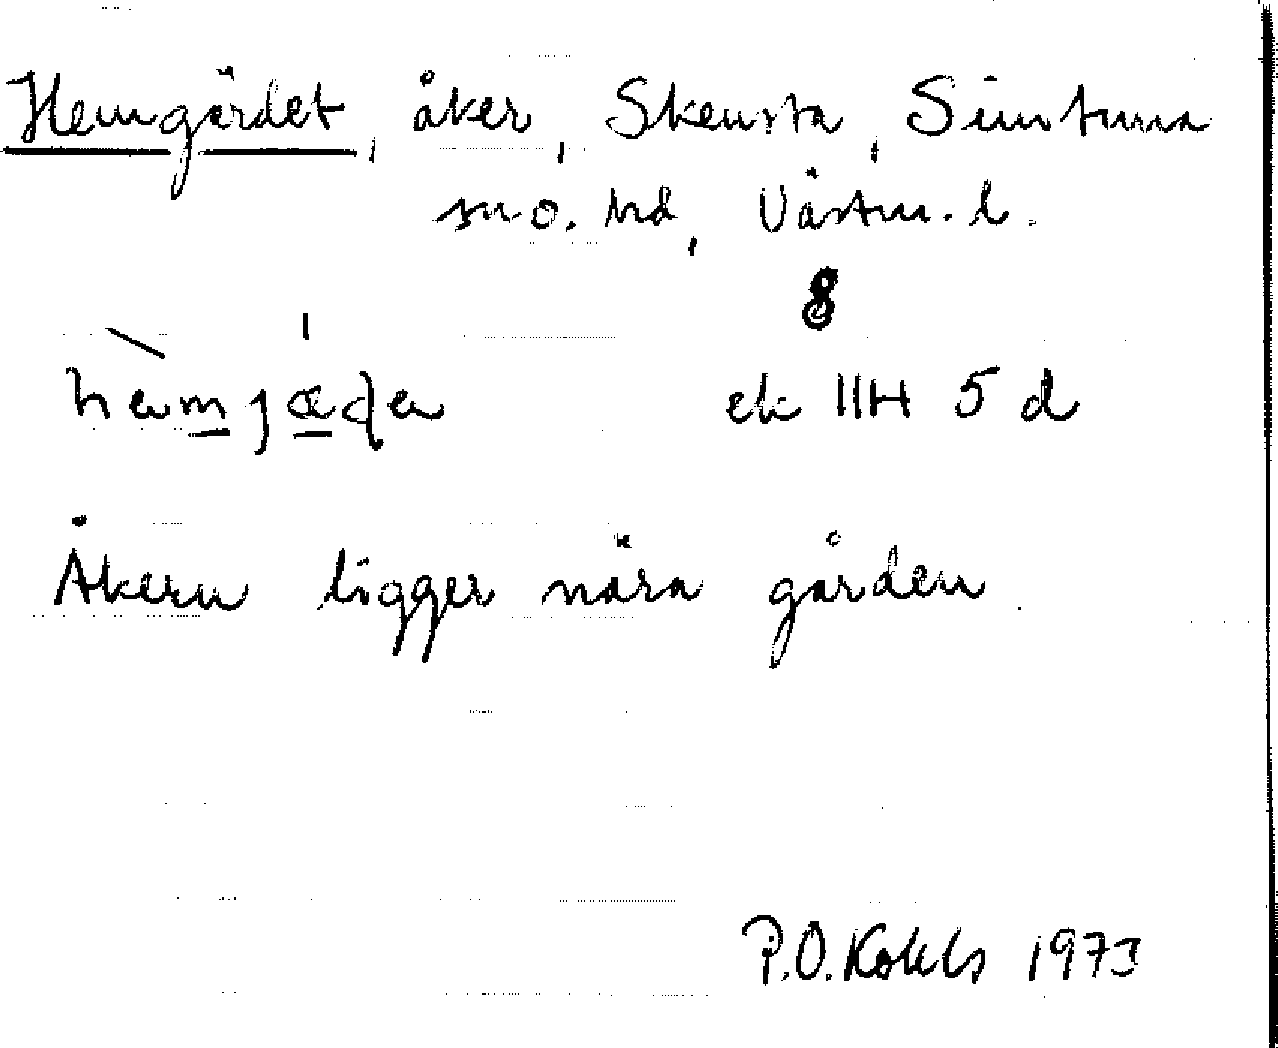 Hemgärdet, åker, Skensta, Simtuna
sn o. hd, Västm. l.
8
hemjæɖe
ek 11H 5 d
Åkern ligger nära gården.
P.O. 1973